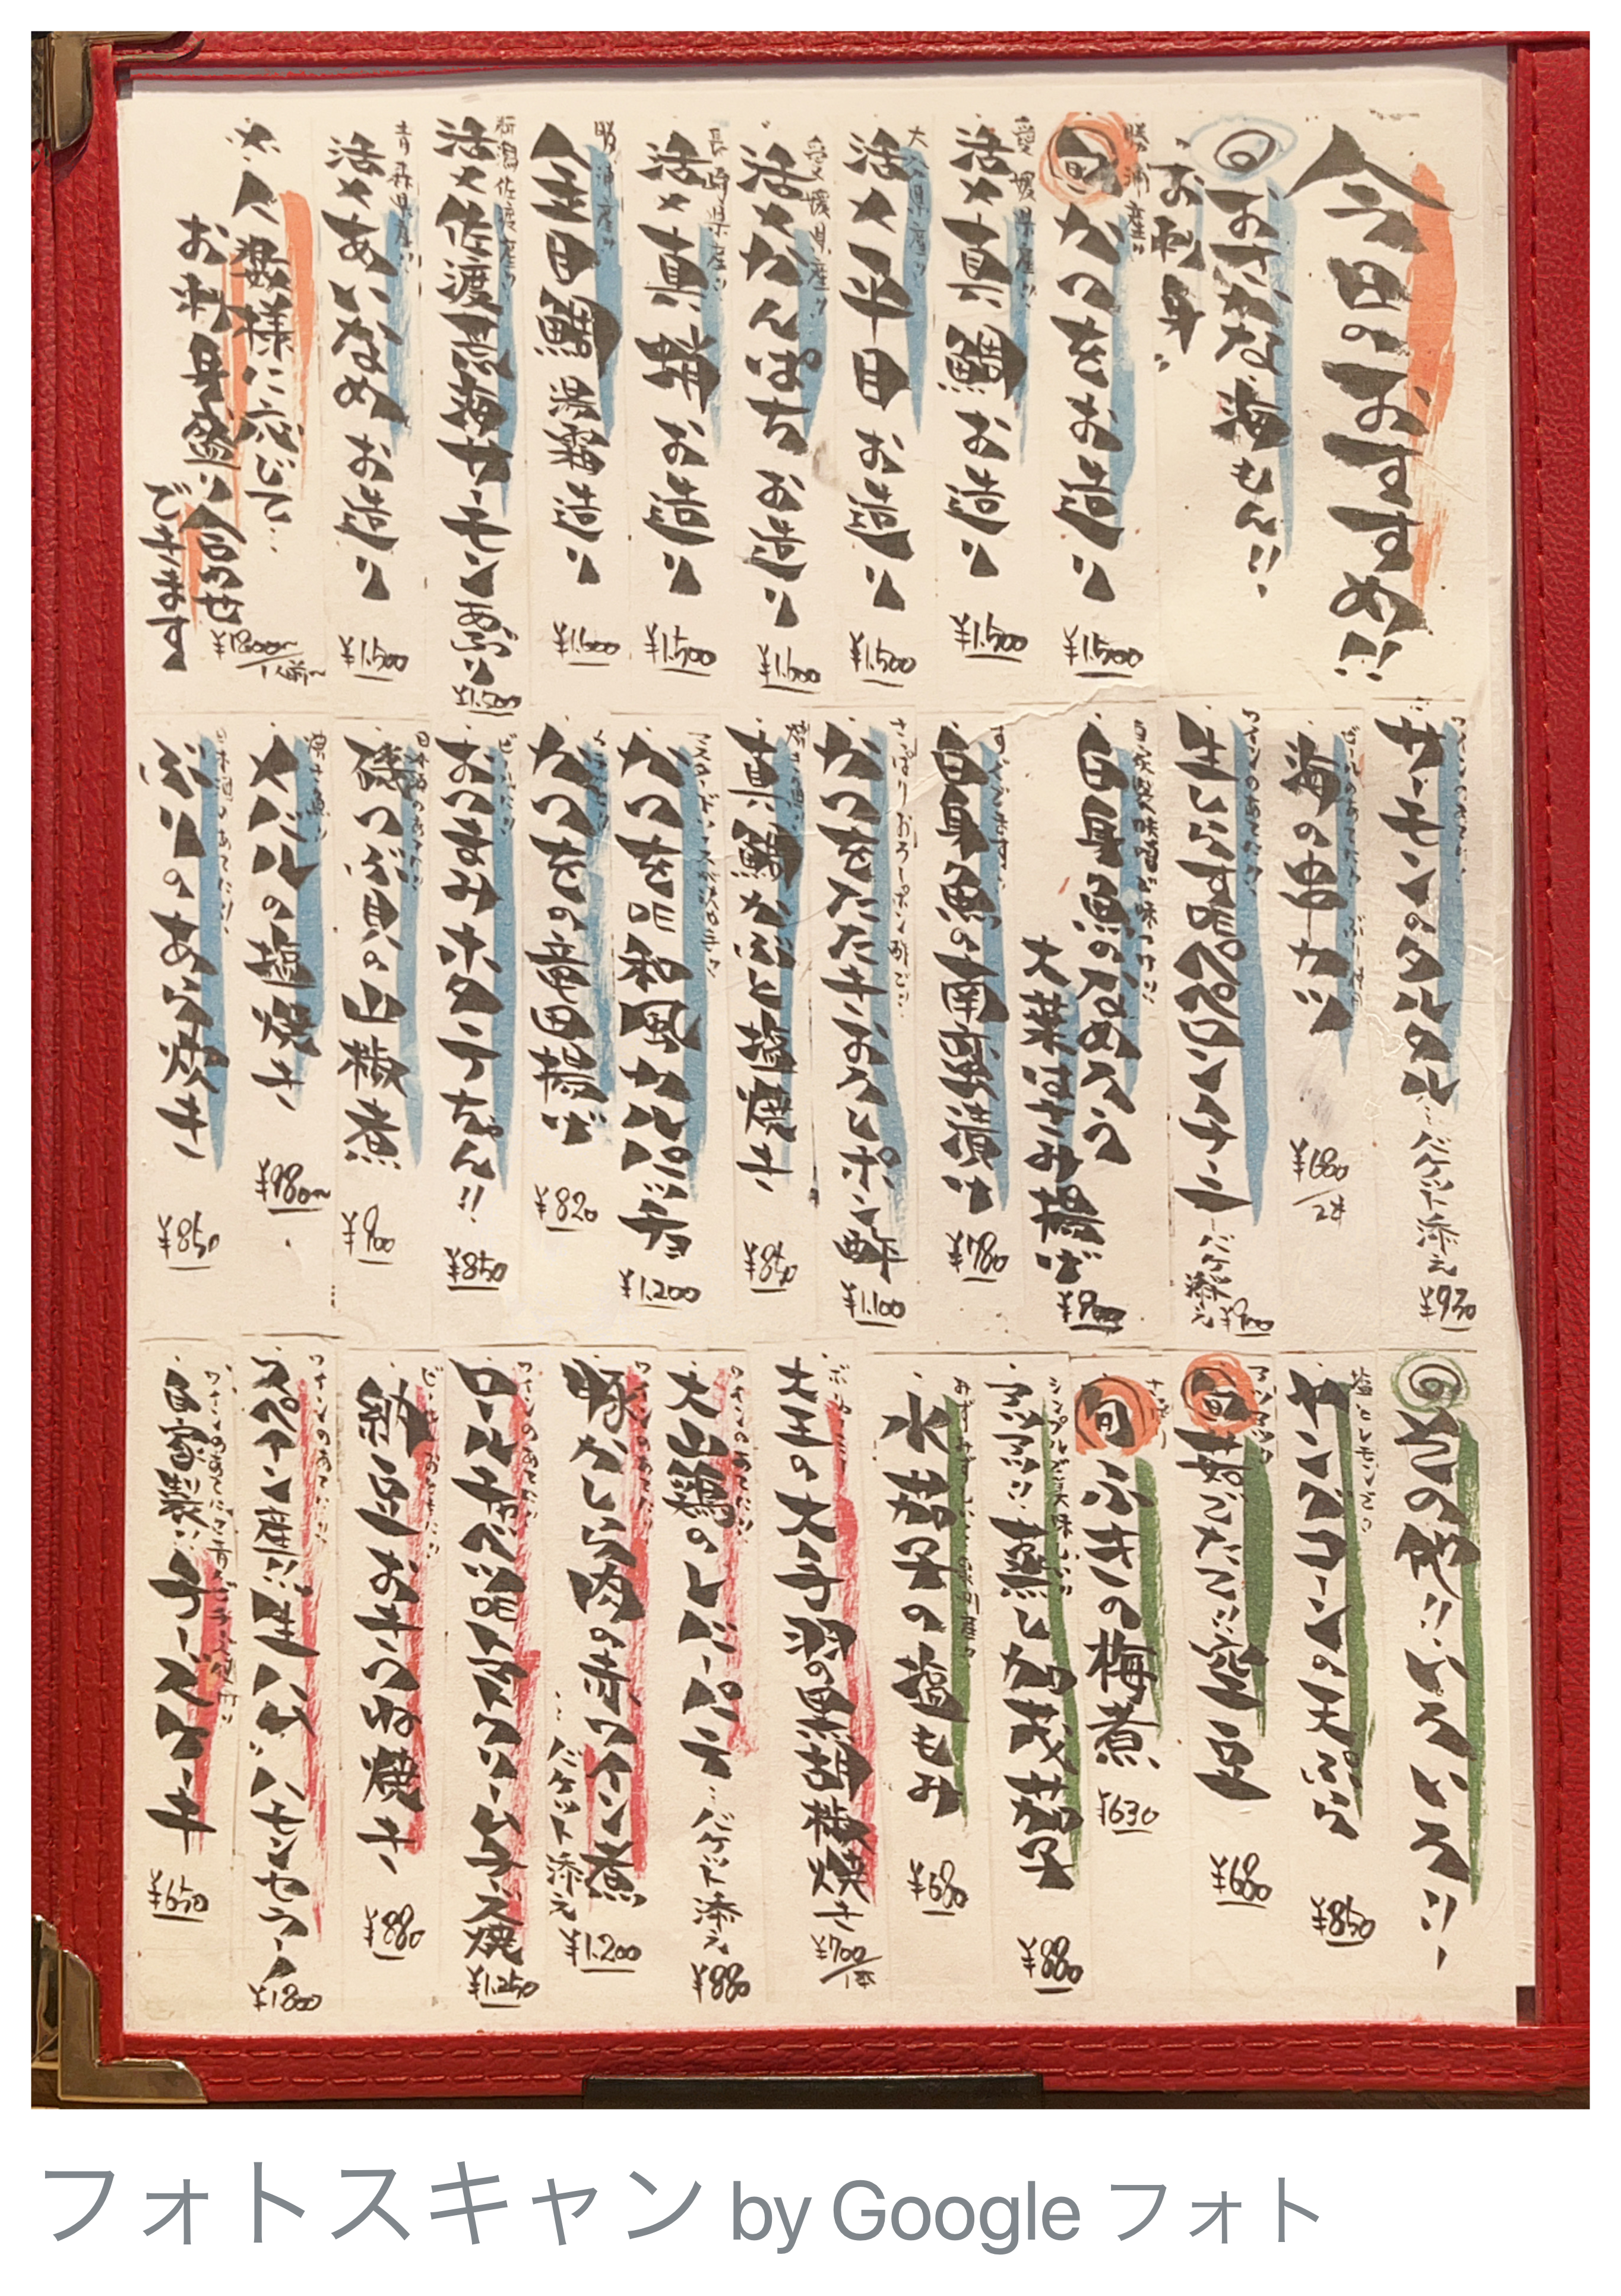 今日のおすすめ!!
おさかな海もん!!
お刺身
勝浦産!!
旬 かつをお造り
¥1,500
愛媛県産!!
活〆真鯛お造り
¥1,500
大分県産!!
活〆平目お造り
¥1,500
愛媛県産!!
活〆かんぱちお造り
長崎県産!!
活〆真鯵お造り
¥1,500
勝浦産!!
金目鯛湯霜造り
新潟佐渡産!!
活〆佐渡荒海サーモンあぶり
¥1,500
青森県産!!
活〆あいなめお造り
¥1,500
人数様に応じて…
お刺身盛り合わせ
できます
¥1800〜/1人前〜
ワインのあてに!!
サーモンのタルタル…バケット添え
¥930
海の串カツ
¥680/2本
ワインのあてに!!
生しらす啌ペペロンチーニ
バケット添え
¥900
自家製味噌で味つけ!!
白身魚のなめろう
大葉はさみ揚げ
¥900
すぐでます!!
白身魚の南蛮漬け
¥780
さっぱりおろしポン酢で!!
かつをたたきおろしポン酢
¥1,100
真鯛かぶと塩焼き
¥850
かつを啌和風カルパッチョ
¥1,200
かつをの竜田揚げ
¥820
おつまみホタテちゃん!!
¥850
日本酒のあてに!!
磯つぶ貝の山椒煮
¥900
メバルの塩焼き
¥980〜
日本酒のあてに!!
ぶりのあら炊き
¥850
その他!!いろいろ!!
塩とレモンで!!
ヤングコーンの天ぷら
¥850
アツアツ
旬 茹でたて!!空豆
¥680
旬 ふきの梅煮
¥630
シンプルだけど美味しい!!
アツアツ!!蒸し加茂茄子
¥880
水茄子の塩もみ
¥680
大王の大手羽の黒胡椒焼き
¥700/1本
ワインのあてに!!
大山鶏のレバーパテ…バケット添え
¥880
ワインのあてに!!
豚かしら肉の赤ワイン煮
…バケット添え
¥1,200
ワインのあてに!!
ロールキャベツ啌トマトクリームチーズ焼
¥1,250
納豆おきつね焼き
¥880
ワインのあてに!!
スペイン産!!生ハム"ハモンセラーノ
¥1800
自家製!!チーズケーキ
¥650
フォトスキャン by Google フォト